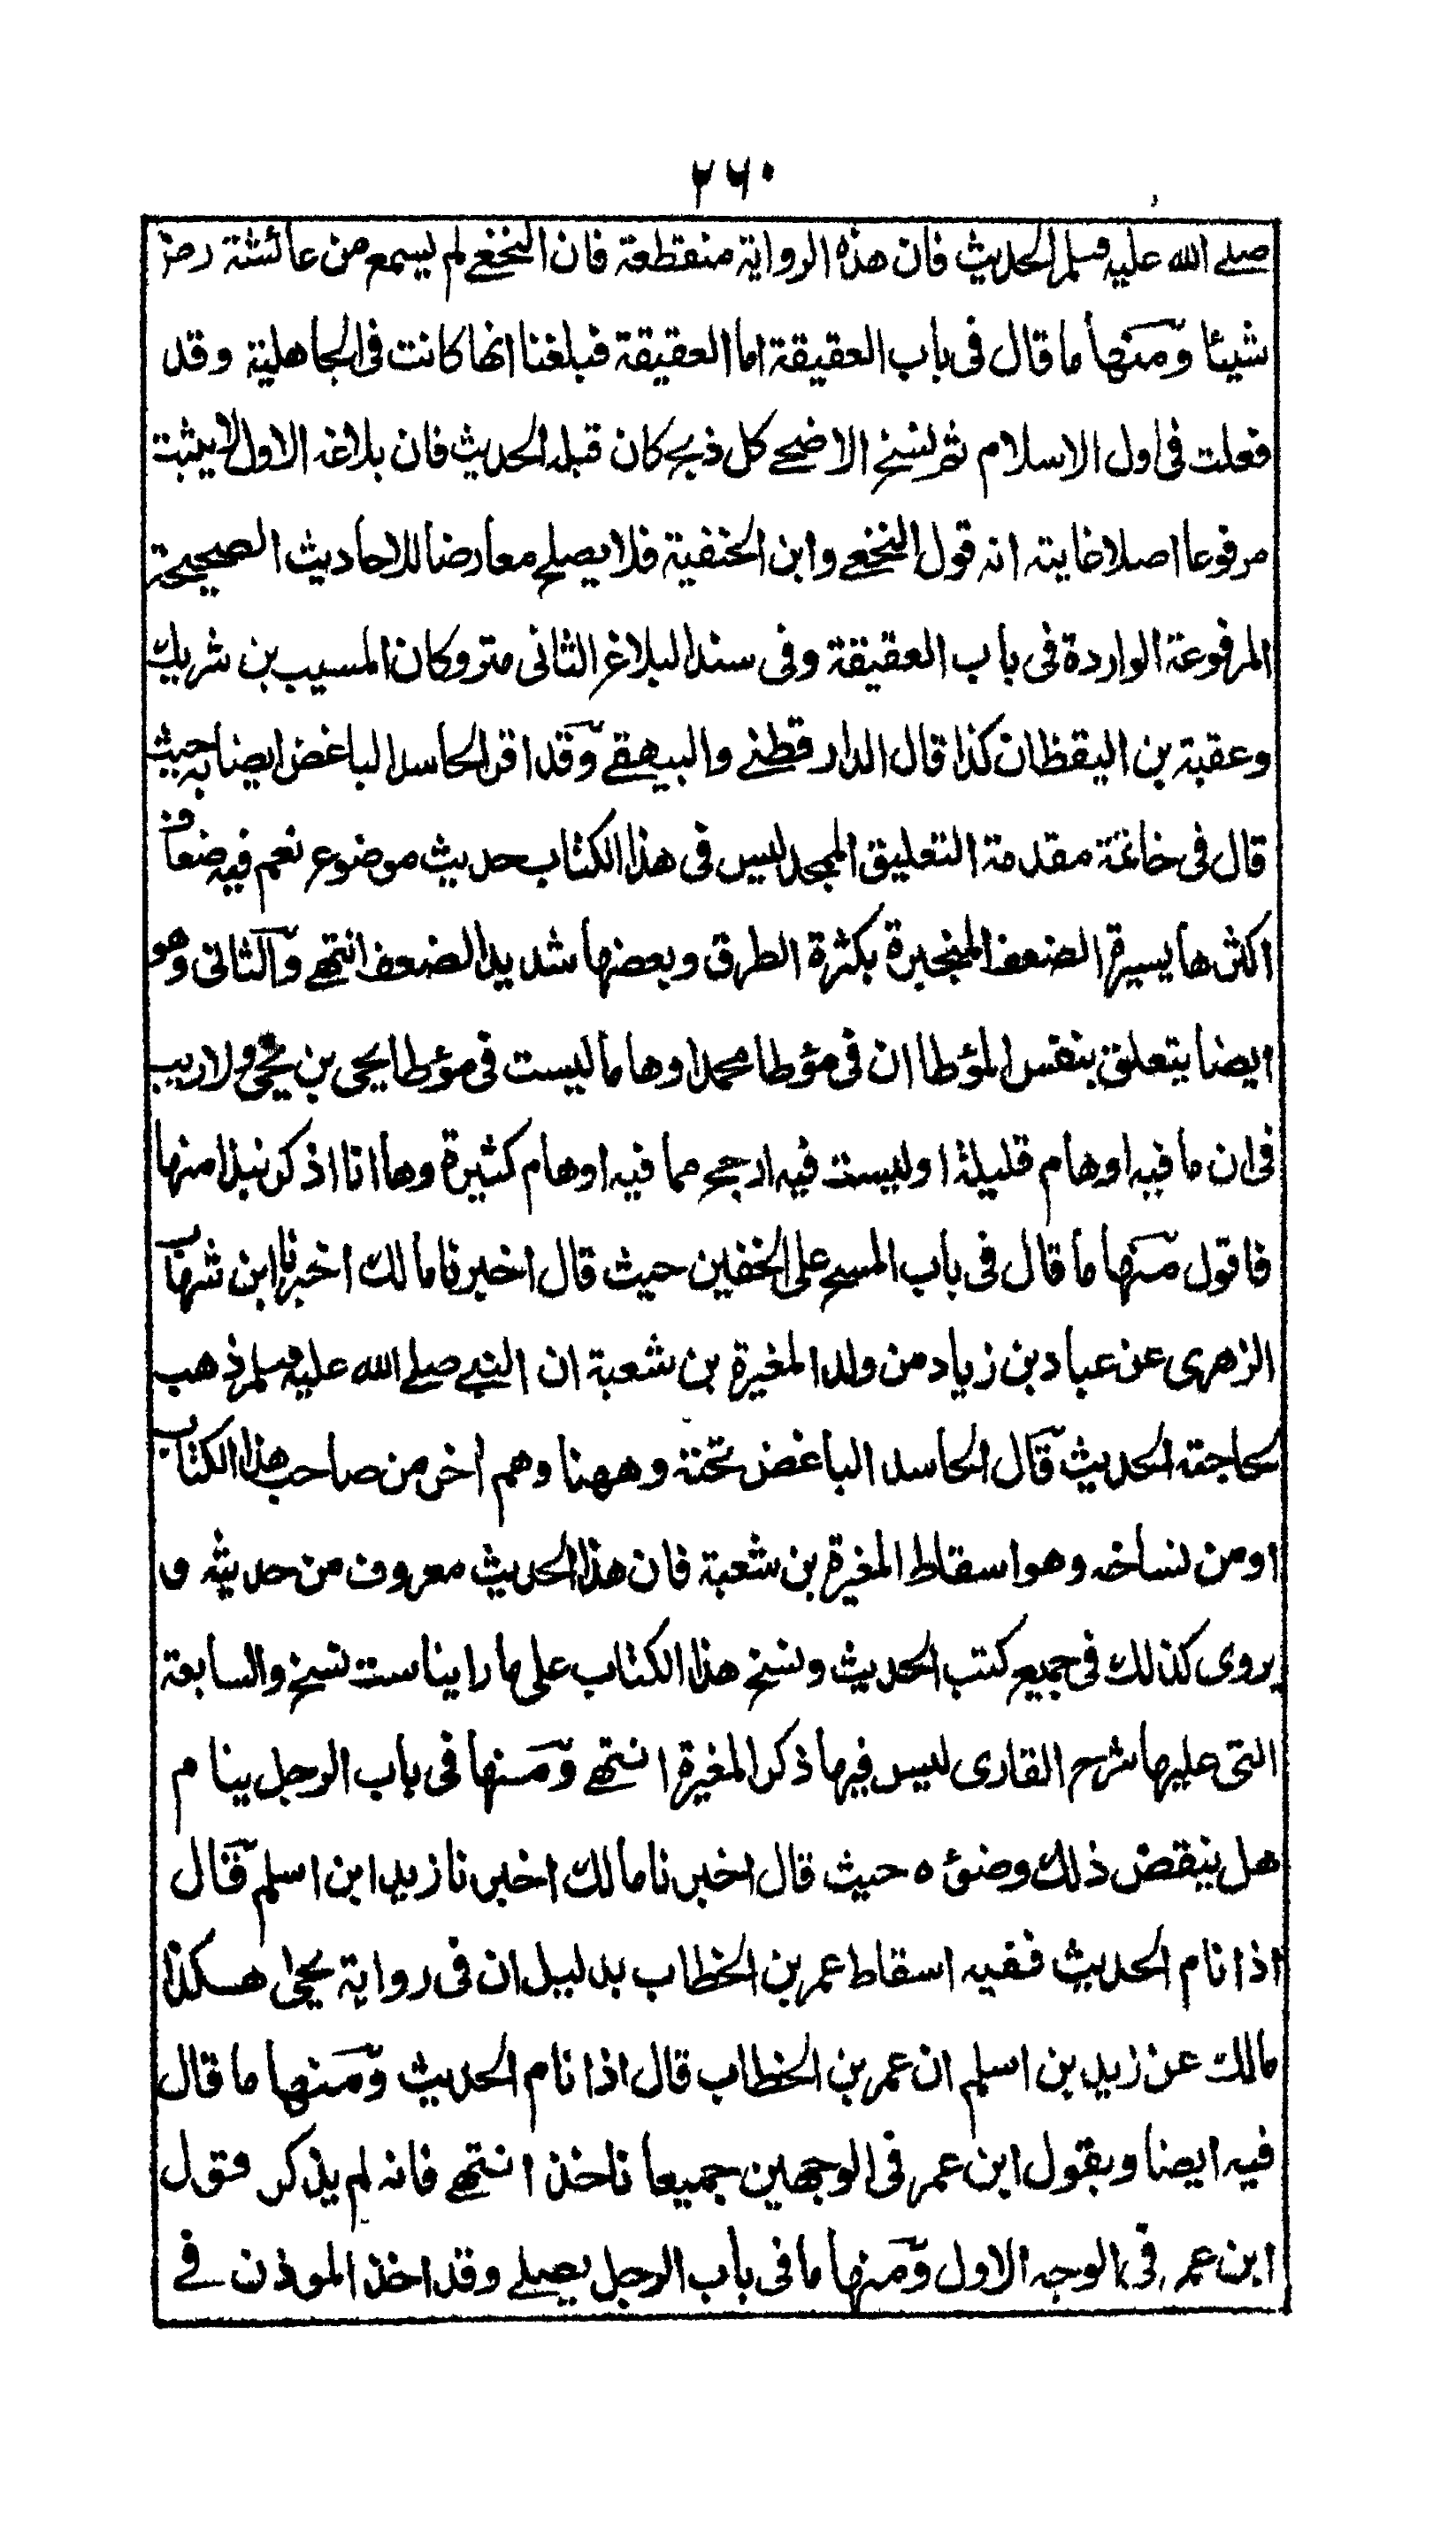 ٢٦٠
صلے الله عليه وسلم الحديث فان هذه الرواية منقطعة فان النخعے لم يسمع من عائشة رضـ
شيئا ومنها ما قال فى باب العقيقة اما العقيقة فبلغنا انها كانت فى الجاهلية وقد
فعلت فى اول الاسلام ثم نسخ الاضحے كل ذبح كان قبله الحديث فان بلاغه الاول لا يثبت
مرفوعا اصلا غايته انه قول النخعے وابن الحنفية فلا يصلح معارضا للاحاديث الصحيحة
المرفوعة الواردة فى باب العقيقة وفى سند البلاغ الثانى متروكان المسيب بن شريك
وعقبة بن اليقظان كذا قال الدارقطنے والبيهقے وقد اقر الحاسد الباغض ايضا به حيث
قال فى خاتمة مقدمة التعليق الممجد ليس فى هذا الكتاب حديث موضوع نعم فيه ضعاف
اكثرها يسيرة الضعف المنجبرة بكثرة الطرق وبعضها شديد الضعف انتهے والثانى وهو
ايضا يتعلق بنفس المؤطا ان فى مؤطا محمد اوهاما ليست فى مؤطا يحيى بن يحيى ولا ريب
فى ان ما فيه اوهام قليلة او ليست فيه ارجح مما فيه اوهام كثيرة وها انا اذكر نبذا منها
فاقول منها ما قال فى باب المسح على الخفين حيث قال اخبرنا مالك اخبرنا ابن شهاب
الزهرى عن عباد بن زياد من ولد المغيرة بن شعبة ان النبے صلے الله عليه وسلم ذهب
لحاجته الحديث قال الحاسد الباغض تحته وههنا وهم اخر من صاحب هذا الكتاب
او من نساخه وهو اسقاط المغيرة بن شعبة فان هذا الحديث معروف من حديثه و
يروى كذلك فى جميع كتب الحديث ونسخ هذا الكتاب على ما راينا ست نسخ والسابعة
التى عليها شرح القارى ليس فيها ذكر المغيرة انتهے ومنها فى باب الرجل ينام
هل ينقض ذلك وضوءه حيث قال اخبرنا مالك اخبرنا زيد ابن اسلم قال
اذا نام الحديث ففيه اسقاط عمر بن الخطاب بدليل ان فى رواية يحيى هكذا
مالك عن زيد بن اسلم ان عمر بن الخطاب قال اذا نام الحديث ومنها ما قال
فيه ايضا وبقول ابن عمر فى الوجهين جميعا ناخذ انتهے فانه لم يذكر قول
ابن عمر فى الوجه الاول ومنها ما فى باب الرجل يصلے وقد اخذ الموذن فے